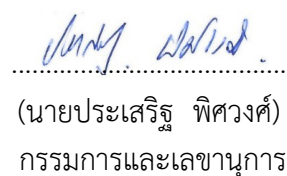 (นายประเสริฐ พิศวงศ์)
กรรมการและเลขานุการ